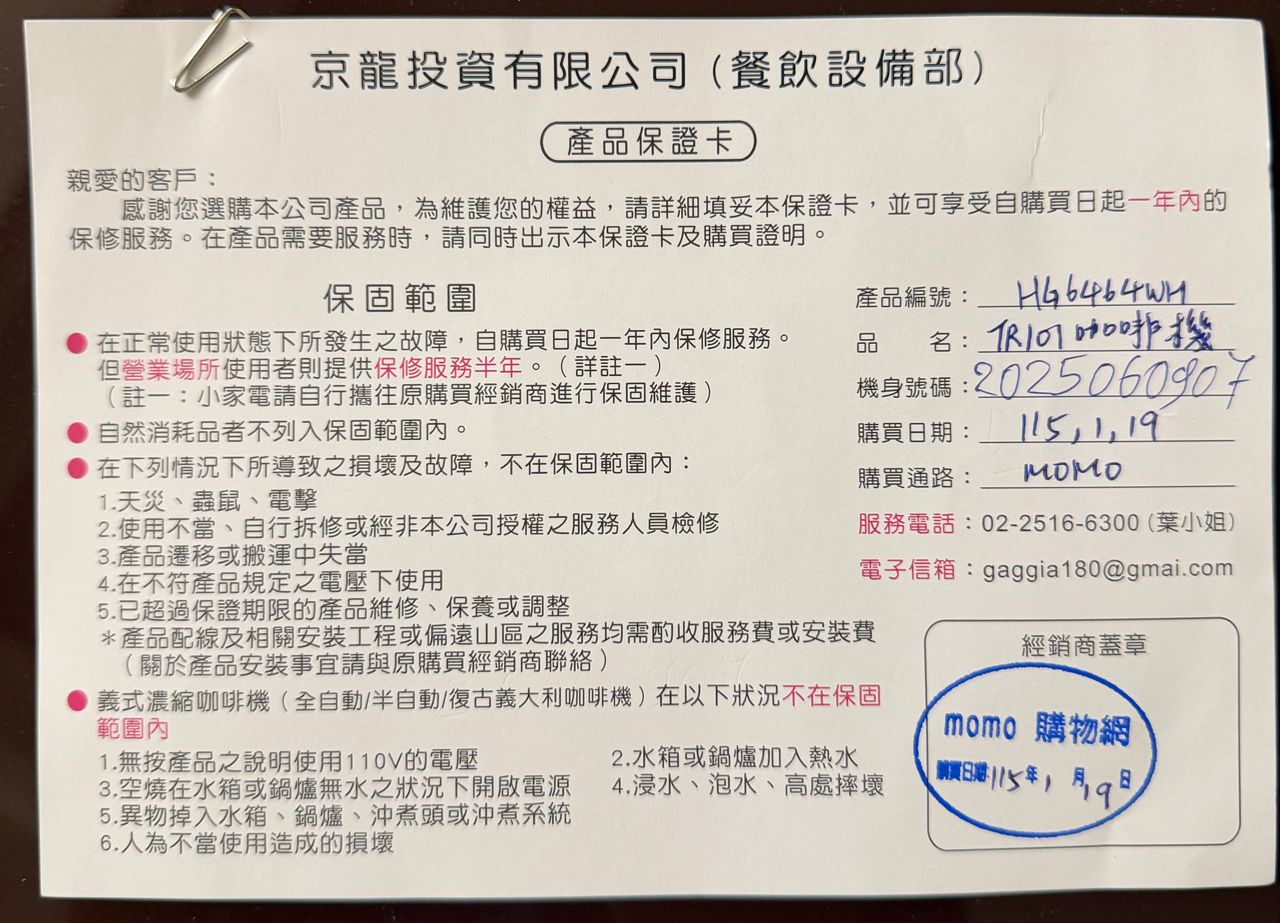 京龍投資有限公司（餐飲設備部）
產品保證卡
親愛的客戶：
感謝您選購本公司產品，為維護您的權益，請詳細填妥本保證卡，並可享受自購買日起一年內的
保修服務。在產品需要服務時，請同時出示本保證卡及購買證明。
保固範圍
● 在正常使用狀態下所發生之故障，自購買日起一年內保修服務。
但營業場所使用者則提供保修服務半年。（詳註一）
（註一：小家電請自行攜往原購買經銷商進行保固維護）
● 自然消耗品者不列入保固範圍內。
● 在下列情況下所導致之損壞及故障，不在保固範圍內：
1.天災、蟲鼠、電擊
2.使用不當、自行拆修或經非本公司授權之服務人員檢修
3.產品遷移或搬運中失當
4.在不符產品規定之電壓下使用
5.已超過保證期限的產品維修、保養或調整
＊產品配線及相關安裝工程或偏遠山區之服務均需酌收服務費或安裝費
（關於產品安裝事宜請與原購買經銷商聯絡）
● 義式濃縮咖啡機（全自動/半自動/復古義大利咖啡機）在以下狀況不在保固
範圍內
1.無按產品之說明使用110V的電壓
2.水箱或鍋爐加入熱水
3.空燒在水箱或鍋爐無水之狀況下開啟電源
4.浸水、泡水、高處摔壞
5.異物掉入水箱、鍋爐、沖煮頭或沖煮系統
6.人為不當使用造成的損壞
產品編號：HG6464WH
品名：TR101咖啡機
機身號碼：2025060907
購買日期：115,1,19
購買通路：MOMO
服務電話：02-2516-6300（葉小姐）
電子信箱：gaggia180@gmai.com
經銷商蓋章
momo 購物網
購買日期:115年1月19日